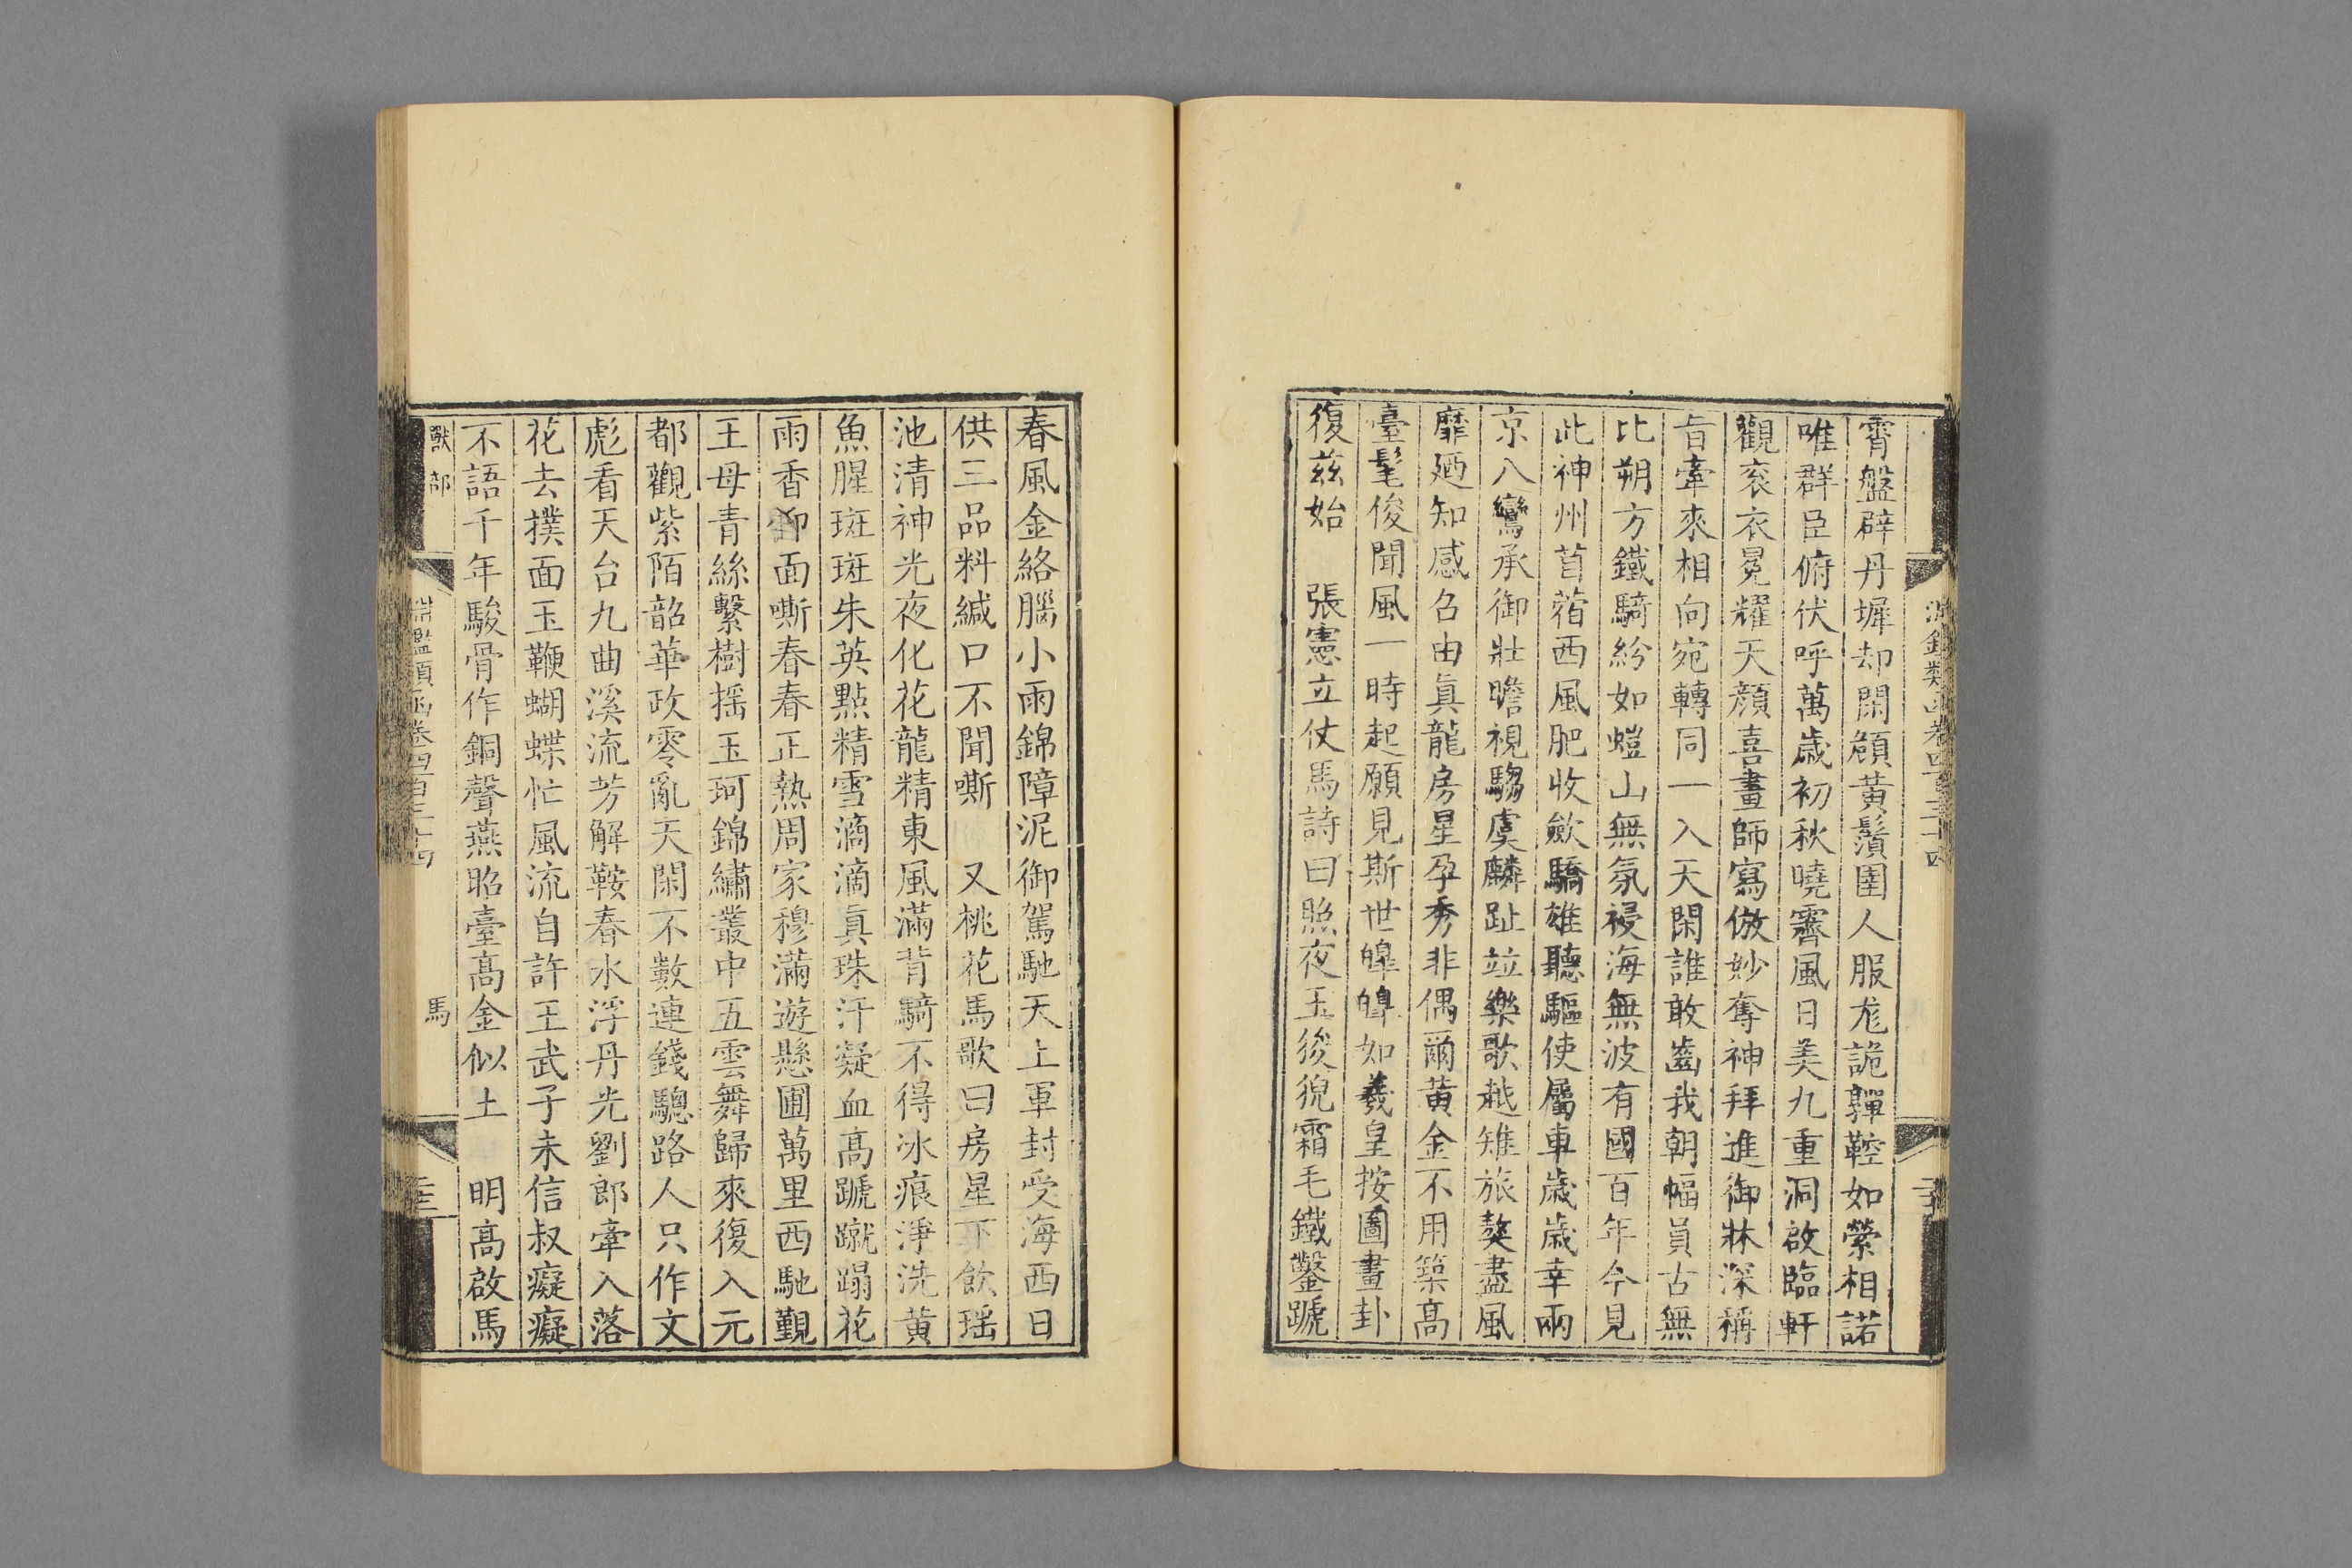 霄盤辟丹墀却閑頠黃鬚圉人服尨詭鞸鞚如縈相諾
唯群臣俯伏呼萬歲初秋曉霽風日美九重洞啟臨軒
觀衮衣冕耀天顏喜畫師寫倣妙奪神拜進御牀深稱
旨牽來相向宛轉同一入天閑誰敢齒我朝幅員古無
比朔方鐵騎紛如螘山無氛祲海無波有國百年今見
此神州苜蓿西風肥收歛驕雄聽驅使屬車歲歲幸兩
京八鸞承御壯瞻視騶虞麟趾竝樂歌越雉旅獒盡風
靡廼知感召由眞龍房星孕秀非偶爾黃金不用築高
臺髦俊聞風一時起願見斯世皥皥如羲皇按圖畫卦
復茲始　張憲立仗馬詩曰照夜玉狻猊霜毛鐵鑿蹏
春風金絡腦小雨錦障泥御駕馳天上軍封受海西日
供三品料緘口不聞嘶　又桃花馬歌曰房星下飲瑤
池清神光夜化花龍精東風滿背騎不得冰痕淨洗黃
魚腥斑斑朱英點精雪滴滴真珠汗凝血高蹏蹴蹋花
雨香御面嘶春春正熱周家穆滿遊懸圃萬里西馳覲
王母青絲繫樹搖玉珂錦繡叢中五雲舞歸來復入元
都觀紫陌韶華政零亂天閑不數連錢驄路人只作文
彪看天台九曲溪流芳解鞍春水浮丹光劉郎牽入落
花去撲面玉鞭蝴蝶忙風流自許王武子未信叔癡癡
不語千年駿骨作銅聲燕昭臺高金似土　明高啟馬
獸部　淵鑑類函卷四百三十四　馬